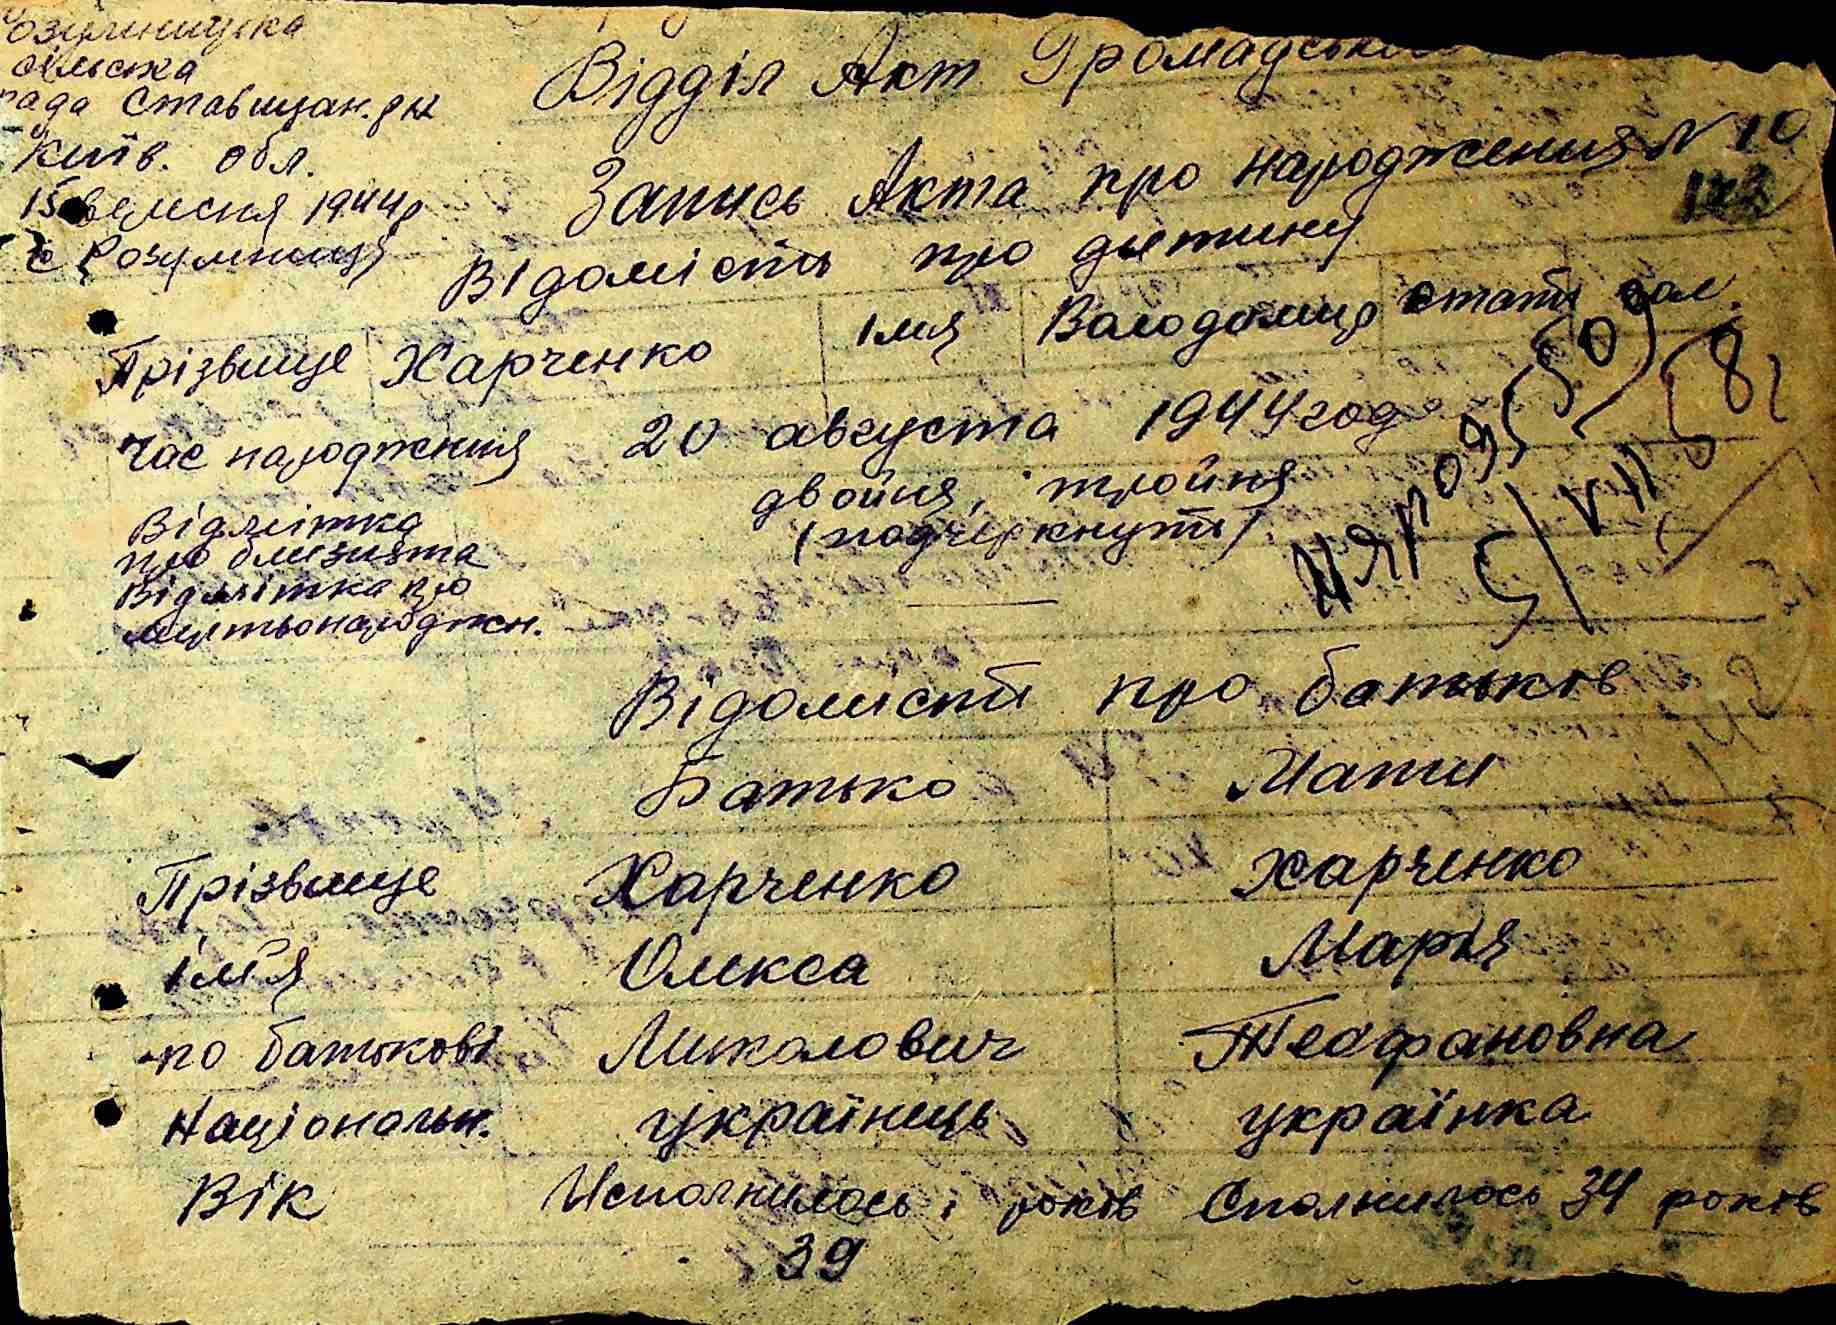 Розумницька
сільська
рада Ставищан. р-н
Київ. обл.
15 вересня 1944 р
с Розумниця
Відділ Акт Громадсько
Запись Акта про народження N 10
Відомість про дитину
Прізвище Харченко імя Володимир стать чол.
Час народження 20 августа 1944 год
Відмітка
про близнята
двойня, тройня
(подчеркнуть)
Відмітка про
мертвонароджен.
ІІ ЯР 095509
51 VII 581
Відомисти про батьків
Батько Мати
Прізвище Харченко Харченко
ім'я Олекса Марія
по батькові Миколович Теофановна
Національн. українець українка
Вік Исполнилось років Сполнилось 34 років
39